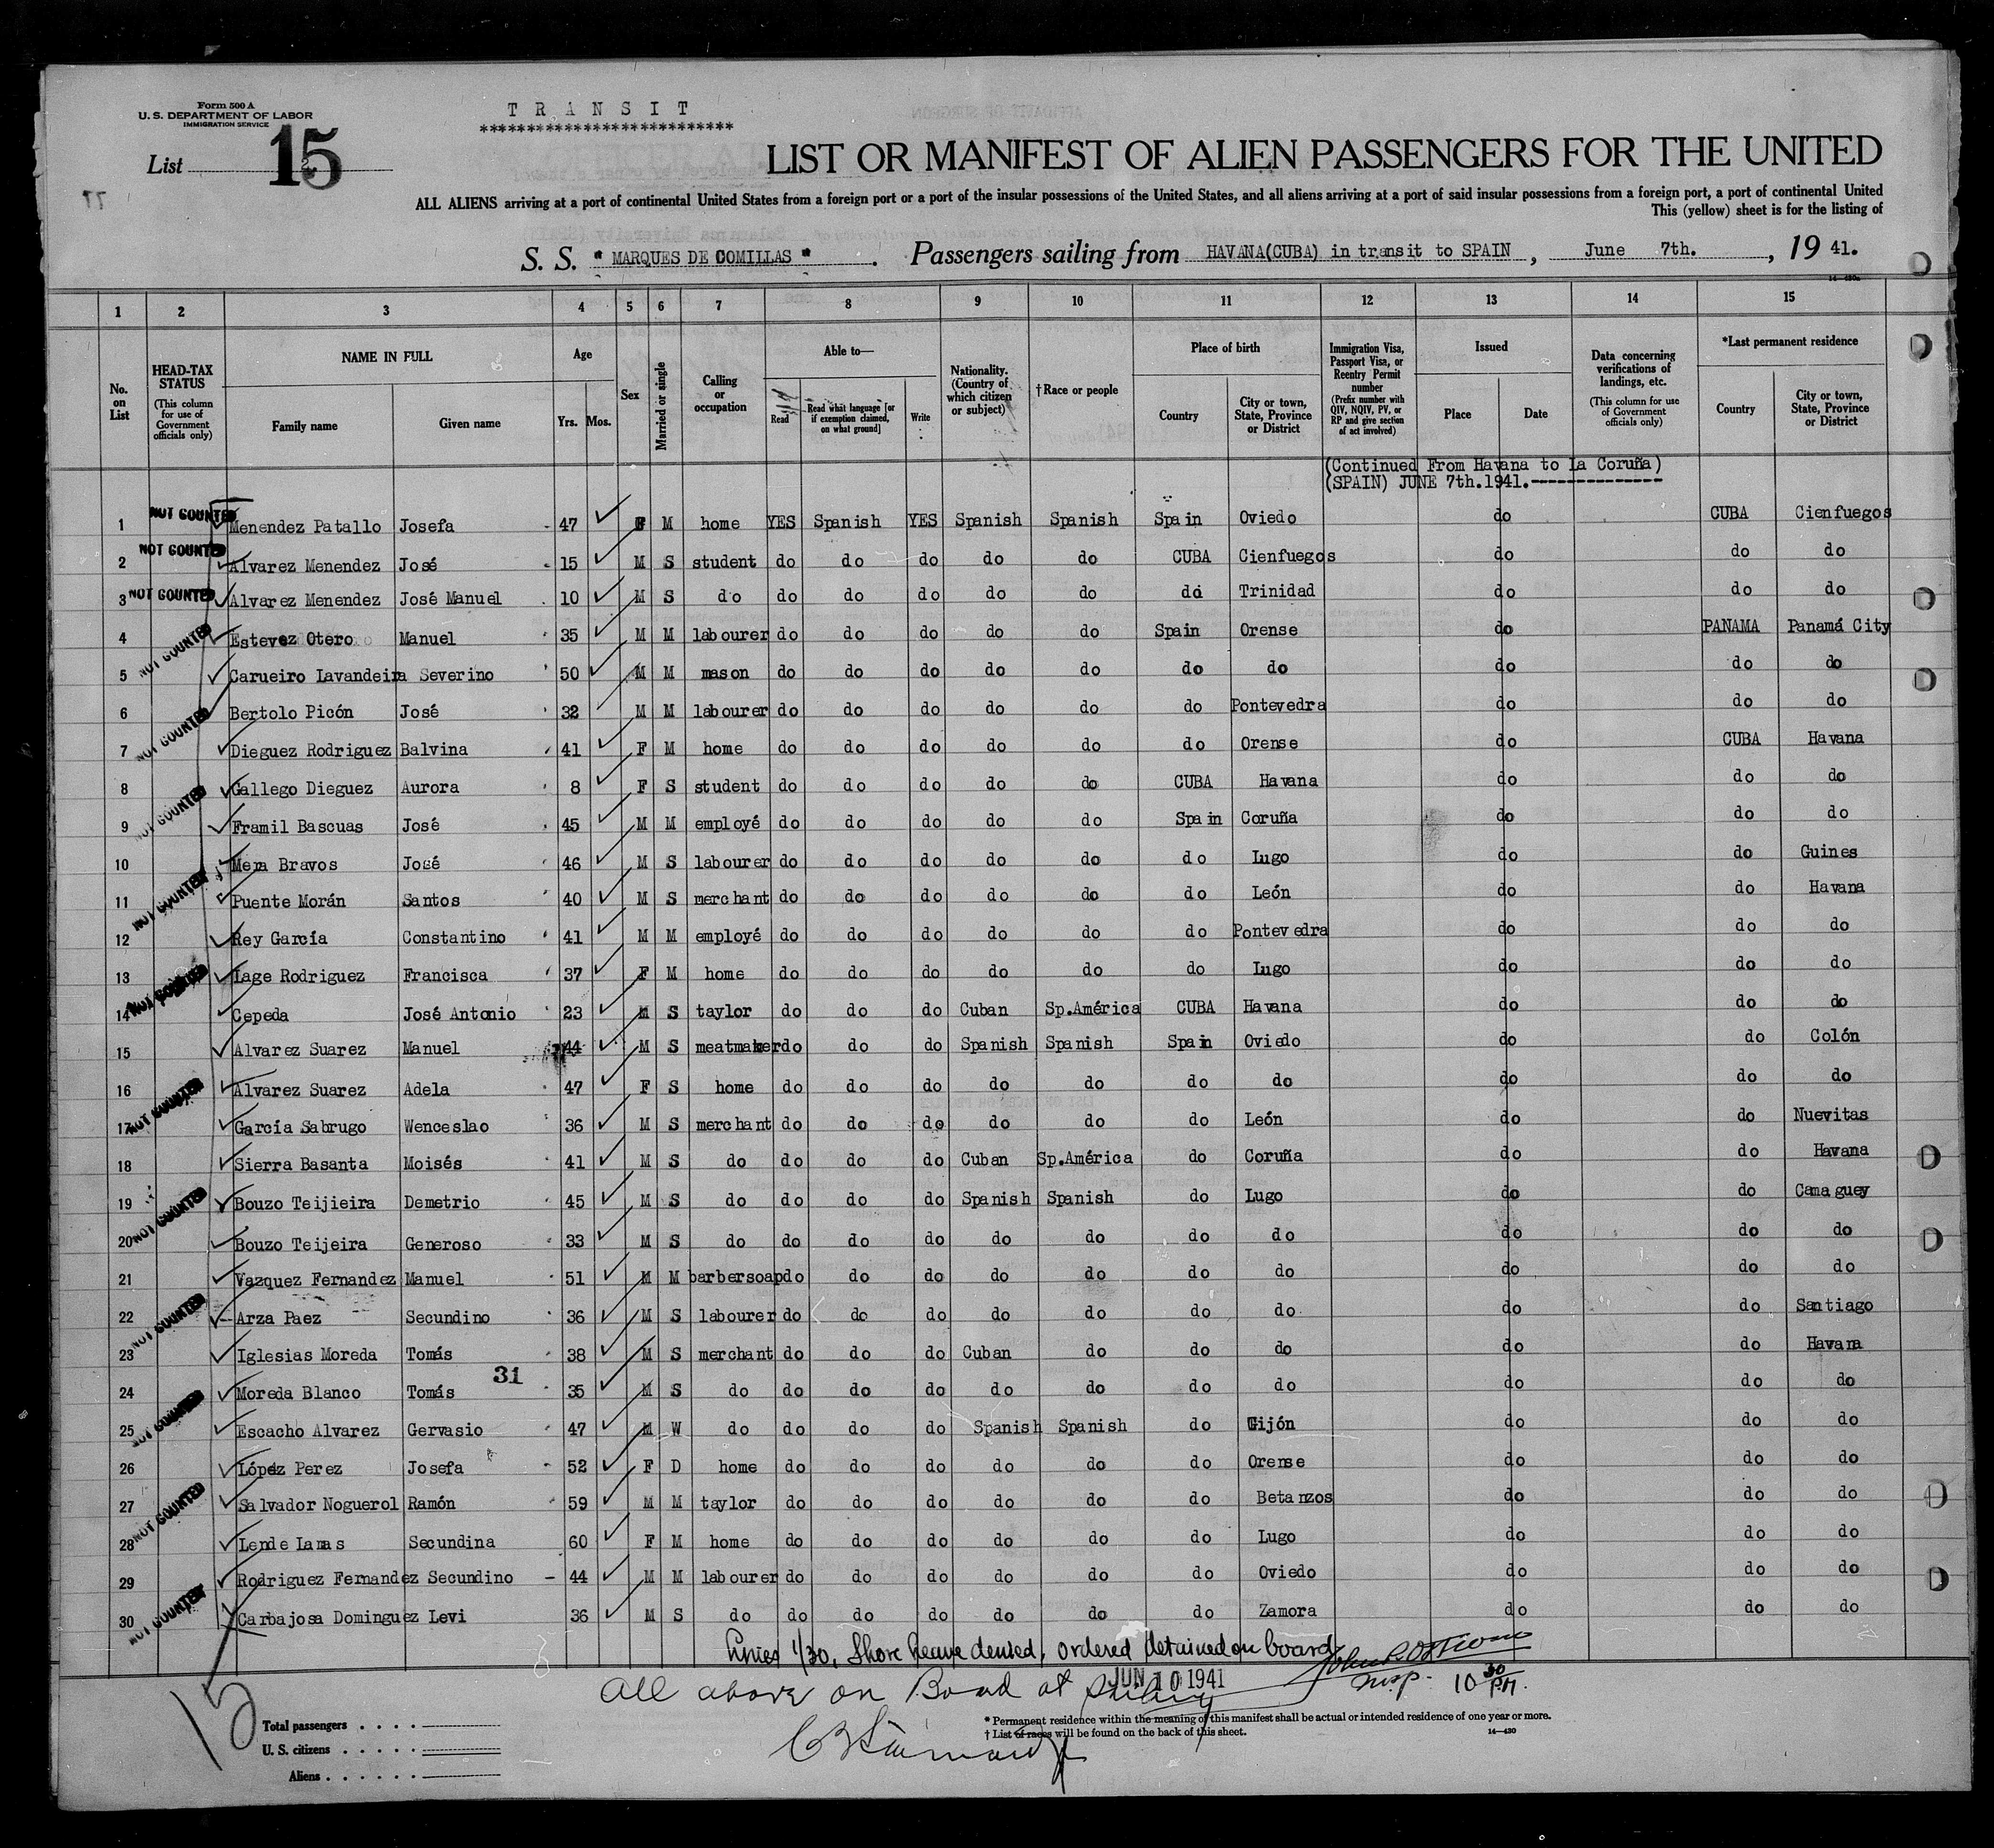 Form 500 A
U. S. DEPARTMENT OF LABOR
IMMIGRATION SERVICE
TRANSIT
***************************
List 15
LIST OR MANIFEST OF ALIEN PASSENGERS FOR THE UNITED
ALL ALIENS arriving at a port of continental United States from a foreign port or a port of the insular possessions of the United States, and all aliens arriving at a port of said insular possessions from a foreign port, a port of continental United
This (yellow) sheet is for the listing of
S. S. " MARQUES DE COMILLAS " . Passengers sailing from HAVANA(CUBA) in transit to SPAIN , June 7th. , 19 41.
1 2 3 4 5 6 7 8 9 10 11 12 13 14 15
No. on List
HEAD-TAX STATUS (This column for use of Government officials only)
NAME IN FULL Family name Given name
Age Yrs. Mos.
Sex
Married or single
Calling or occupation
Able to— Read Read what language [or if exemption claimed, on what ground] Write
Nationality. (Country of which citizen or subject)
†Race or people
Place of birth Country City or town, State, Province or District
Immigration Visa, Passport Visa, or Reentry Permit number (Prefix number with QIV, NQIV, PV, or RP and give section of act involved)
Issued Place Date
Data concerning verifications of landings, etc. (This column for use of Government officials only)
*Last permanent residence Country City or town, State, Province or District
(Continued From Havana to La Coruña)
(SPAIN) JUNE 7th.1941.--------------
1 NOT COUNTED Menendez Patallo Josefa 47 F M home YES Spanish YES Spanish Spanish Spain Oviedo do CUBA Cienfuegos
2 NOT COUNTED Alvarez Menendez José 15 M S student do do do do do CUBA Cienfuegos do do do
3 NOT COUNTED Alvarez Menendez José Manuel 10 M S do do do do do do do Trinidad do do do
4 NOT COUNTED Estevez Otero Manuel 35 M M labourer do do do do do Spain Orense do PANAMA Panamá City
5 Carueiro Lavandeira Severino 50 M M mason do do do do do do do do do do
6 NOT COUNTED Bertolo Picón José 32 M M labourer do do do do do do Pontevedra do do do
7 Dieguez Rodriguez Balvina 41 F M home do do do do do do Orense do CUBA Havana
8 NOT COUNTED Gallego Dieguez Aurora 8 F S student do do do do do CUBA Havana do do do
9 Framil Bascuas José 45 M M employé do do do do do Spain Coruña do do do
10 NOT COUNTED Mera Bravos José 46 M S labourer do do do do do do Lugo do do Guines
11 Puente Morán Santos 40 M S merchant do do do do do do León do do Havana
12 Rey García Constantino 41 M M employé do do do do do do Pontevedra do do do
13 NOT COUNTED Lage Rodriguez Francisca 37 F M home do do do do do do Lugo do do do
14 Cepeda José Antonio 23 M S taylor do do do Cuban Sp.América CUBA Havana do do do
15 Alvarez Suarez Manuel 44 M S meatmaker do do do Spanish Spanish Spain Oviedo do do Colón
16 NOT COUNTED Alvarez Suarez Adela 47 F S home do do do do do do do do do do
17 García Sabrugo Wenceslao 36 M S merchant do do do do do do León do do Nuevitas
18 Sierra Basanta Moisés 41 M S do do do do Cuban Sp.América do Coruña do do Havana
19 NOT COUNTED Bouzo Teijieira Demetrio 45 M S do do do do Spanish Spanish do Lugo do do Camaguey
20 Bouzo Teijeira Generoso 33 M S do do do do do do do do do do do
21 Vazquez Fernandez Manuel 51 M M barbersoap do do do do do do do do do do
22 NOT COUNTED Arza Paez Secundino 36 M S labourer do do do do do do do do do Santiago
23 Iglesias Moreda Tomás 38 M S merchant do do do Cuban do do do do do Havana
31
24 NOT COUNTED Moreda Blanco Tomás 35 M S do do do do do do do do do do do
25 Escacho Alvarez Gervasio 47 M W do do do do Spanish Spanish do Gijón do do do
26 López Perez Josefa 52 F D home do do do do do do Orense do do do
27 NOT COUNTED Salvador Noguerol Ramón 59 M M taylor do do do do do do Betanzos do do do
28 Lende Lamas Secundina 60 F M home do do do do do do Lugo do do do
29 Rodriguez Fernandez Secundino 44 M M labourer do do do do do do Oviedo do do do
30 NOT COUNTED Carbajosa Dominguez Levi 36 M S do do do do do do do Zamora do do do
Lines 1/30, Shore leave denied, ordered detained on board
Insp. 10 30 P.M.
JUN 10 1941
All above on Board at
15
Total passengers . . . .
U. S. citizens . . . . .
Aliens . . . . . .
* Permanent residence within the meaning of this manifest shall be actual or intended residence of one year or more.
† List of races will be found on the back of this sheet.
14—430